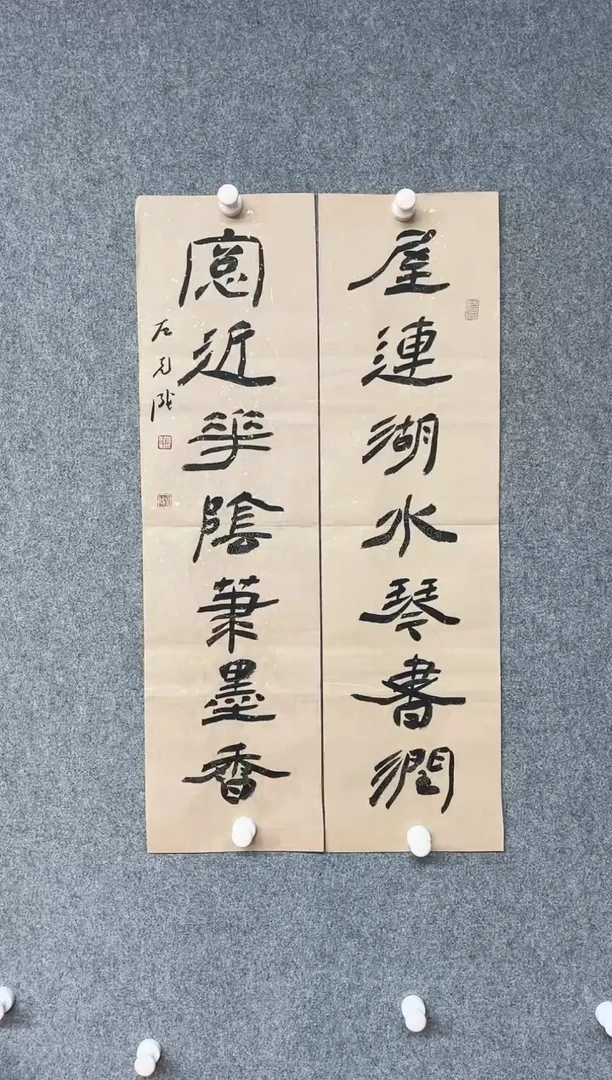 屋連湖水琴書潤
窻近華陰筆墨香